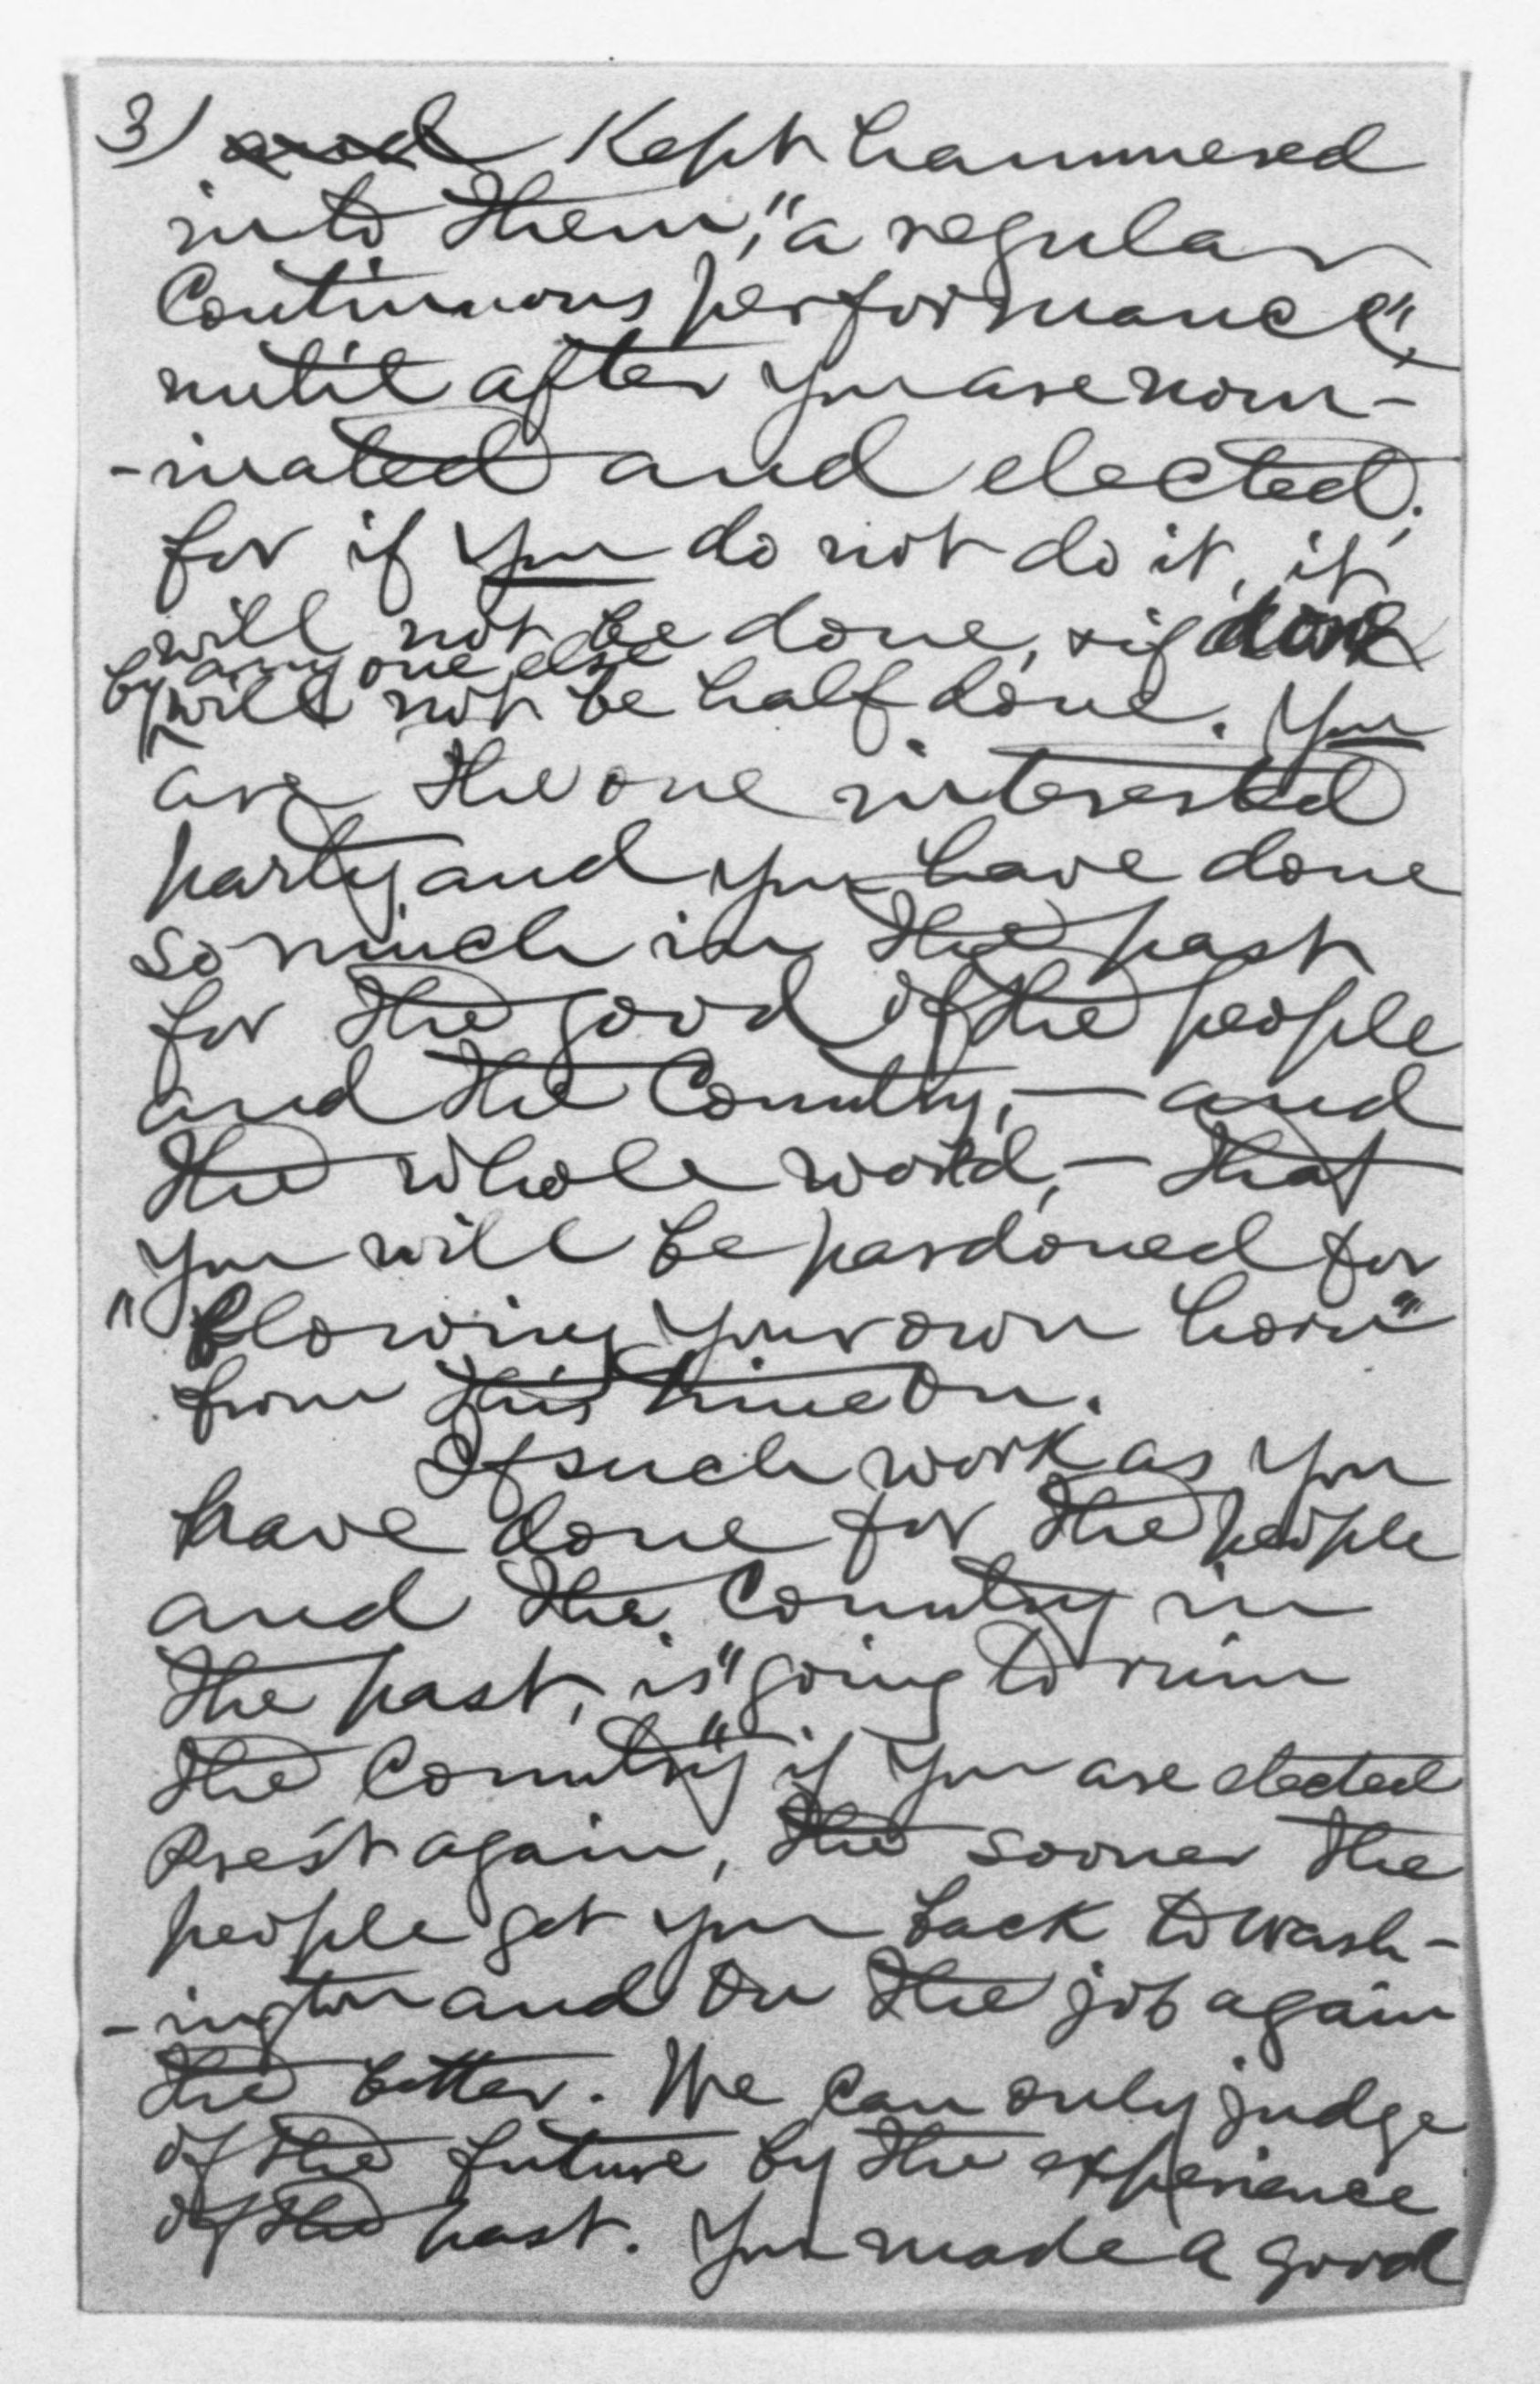 3) and Kept hammered
into them," a regular
Continuous performance",
until after you are nom-
-inated and elected;
for if you do not do it, it
will not be done, & if done
by any one else
will not be half done. You
are the one interested
party, and you have done
so much in the past
for the good of the people
and the Country, — and
the whole world, — that
you will be pardoned for
"blowing your own horn"
from this time on.
If such work as you
have done for the people
and the Country in
the past, is "going to ruin
the Country" if you are elected
Pres't again, the sooner the
people get you back to Wash-
-ington and on the job again
the better. We can only judge
of the future by the experience
of the past. You made a good